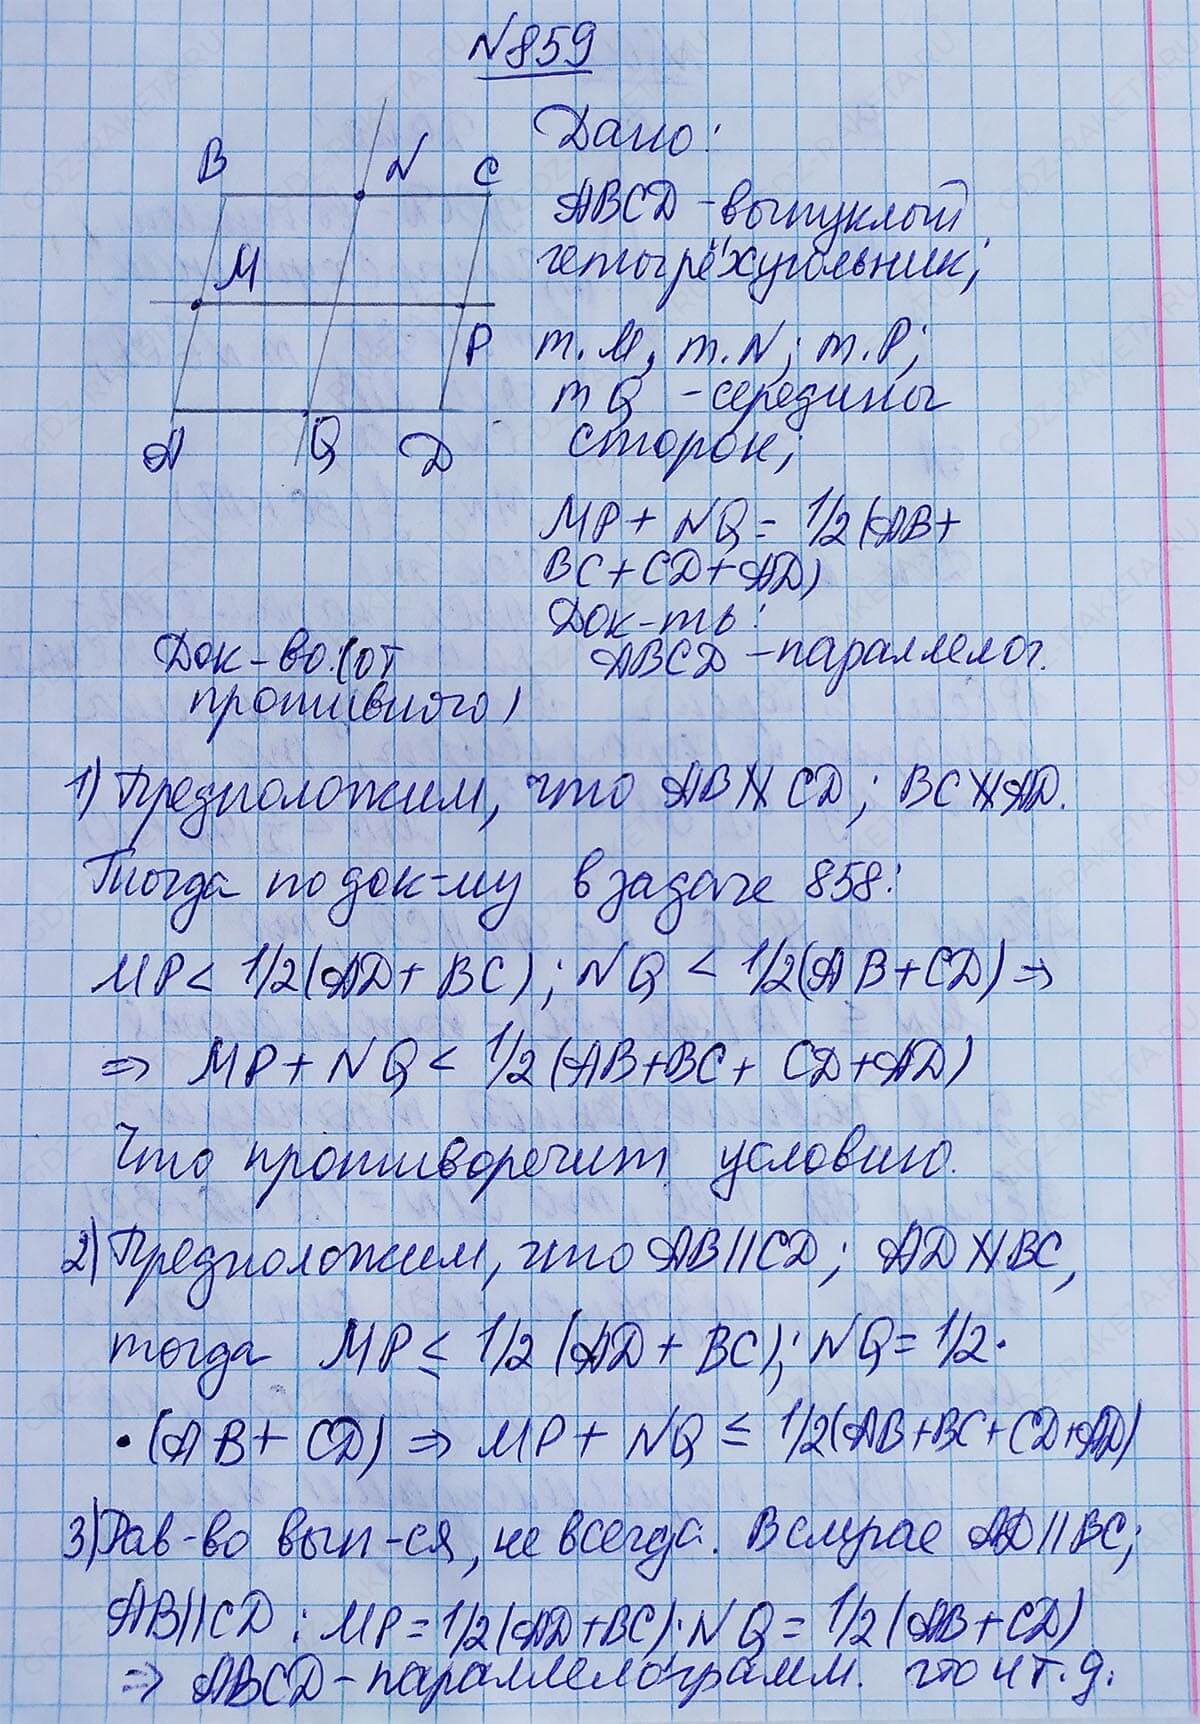 №859
Дано:
B N C
ABCD – выпуклый
M
четырёхугольник;
P
т. M, т. N; т. P;
т Q – середины
A Q D
сторон;
MP + NQ = 1/2 (AB +
BC + CD + AD)
Док-ть:
Док-во: (от
ABCD – параллелог.
противного)
1) Предположим, что AB ∦ CD; BC ∦ AD.
Тогда по док-му в задаче 858:
MP < 1/2 (AD + BC); NQ < 1/2 (AB + CD) ⇒
⇒ MP + NQ < 1/2 (AB + BC + CD + AD)
Что противоречит условию.
2) Предположим, что AB || CD; AD ∦ BC,
тогда MP ≤ 1/2 (AD + BC); NQ = 1/2 ·
· (AB + CD) ⇒ MP + NQ ≤ 1/2 (AB + BC + CD + AD)
3) Рав-во вып-ся, не всегда. В случае AD || BC;
AB || CD : MP = 1/2 (AD + BC); NQ = 1/2 (AB + CD)
⇒ ABCD – параллелограмм. что и т. д.